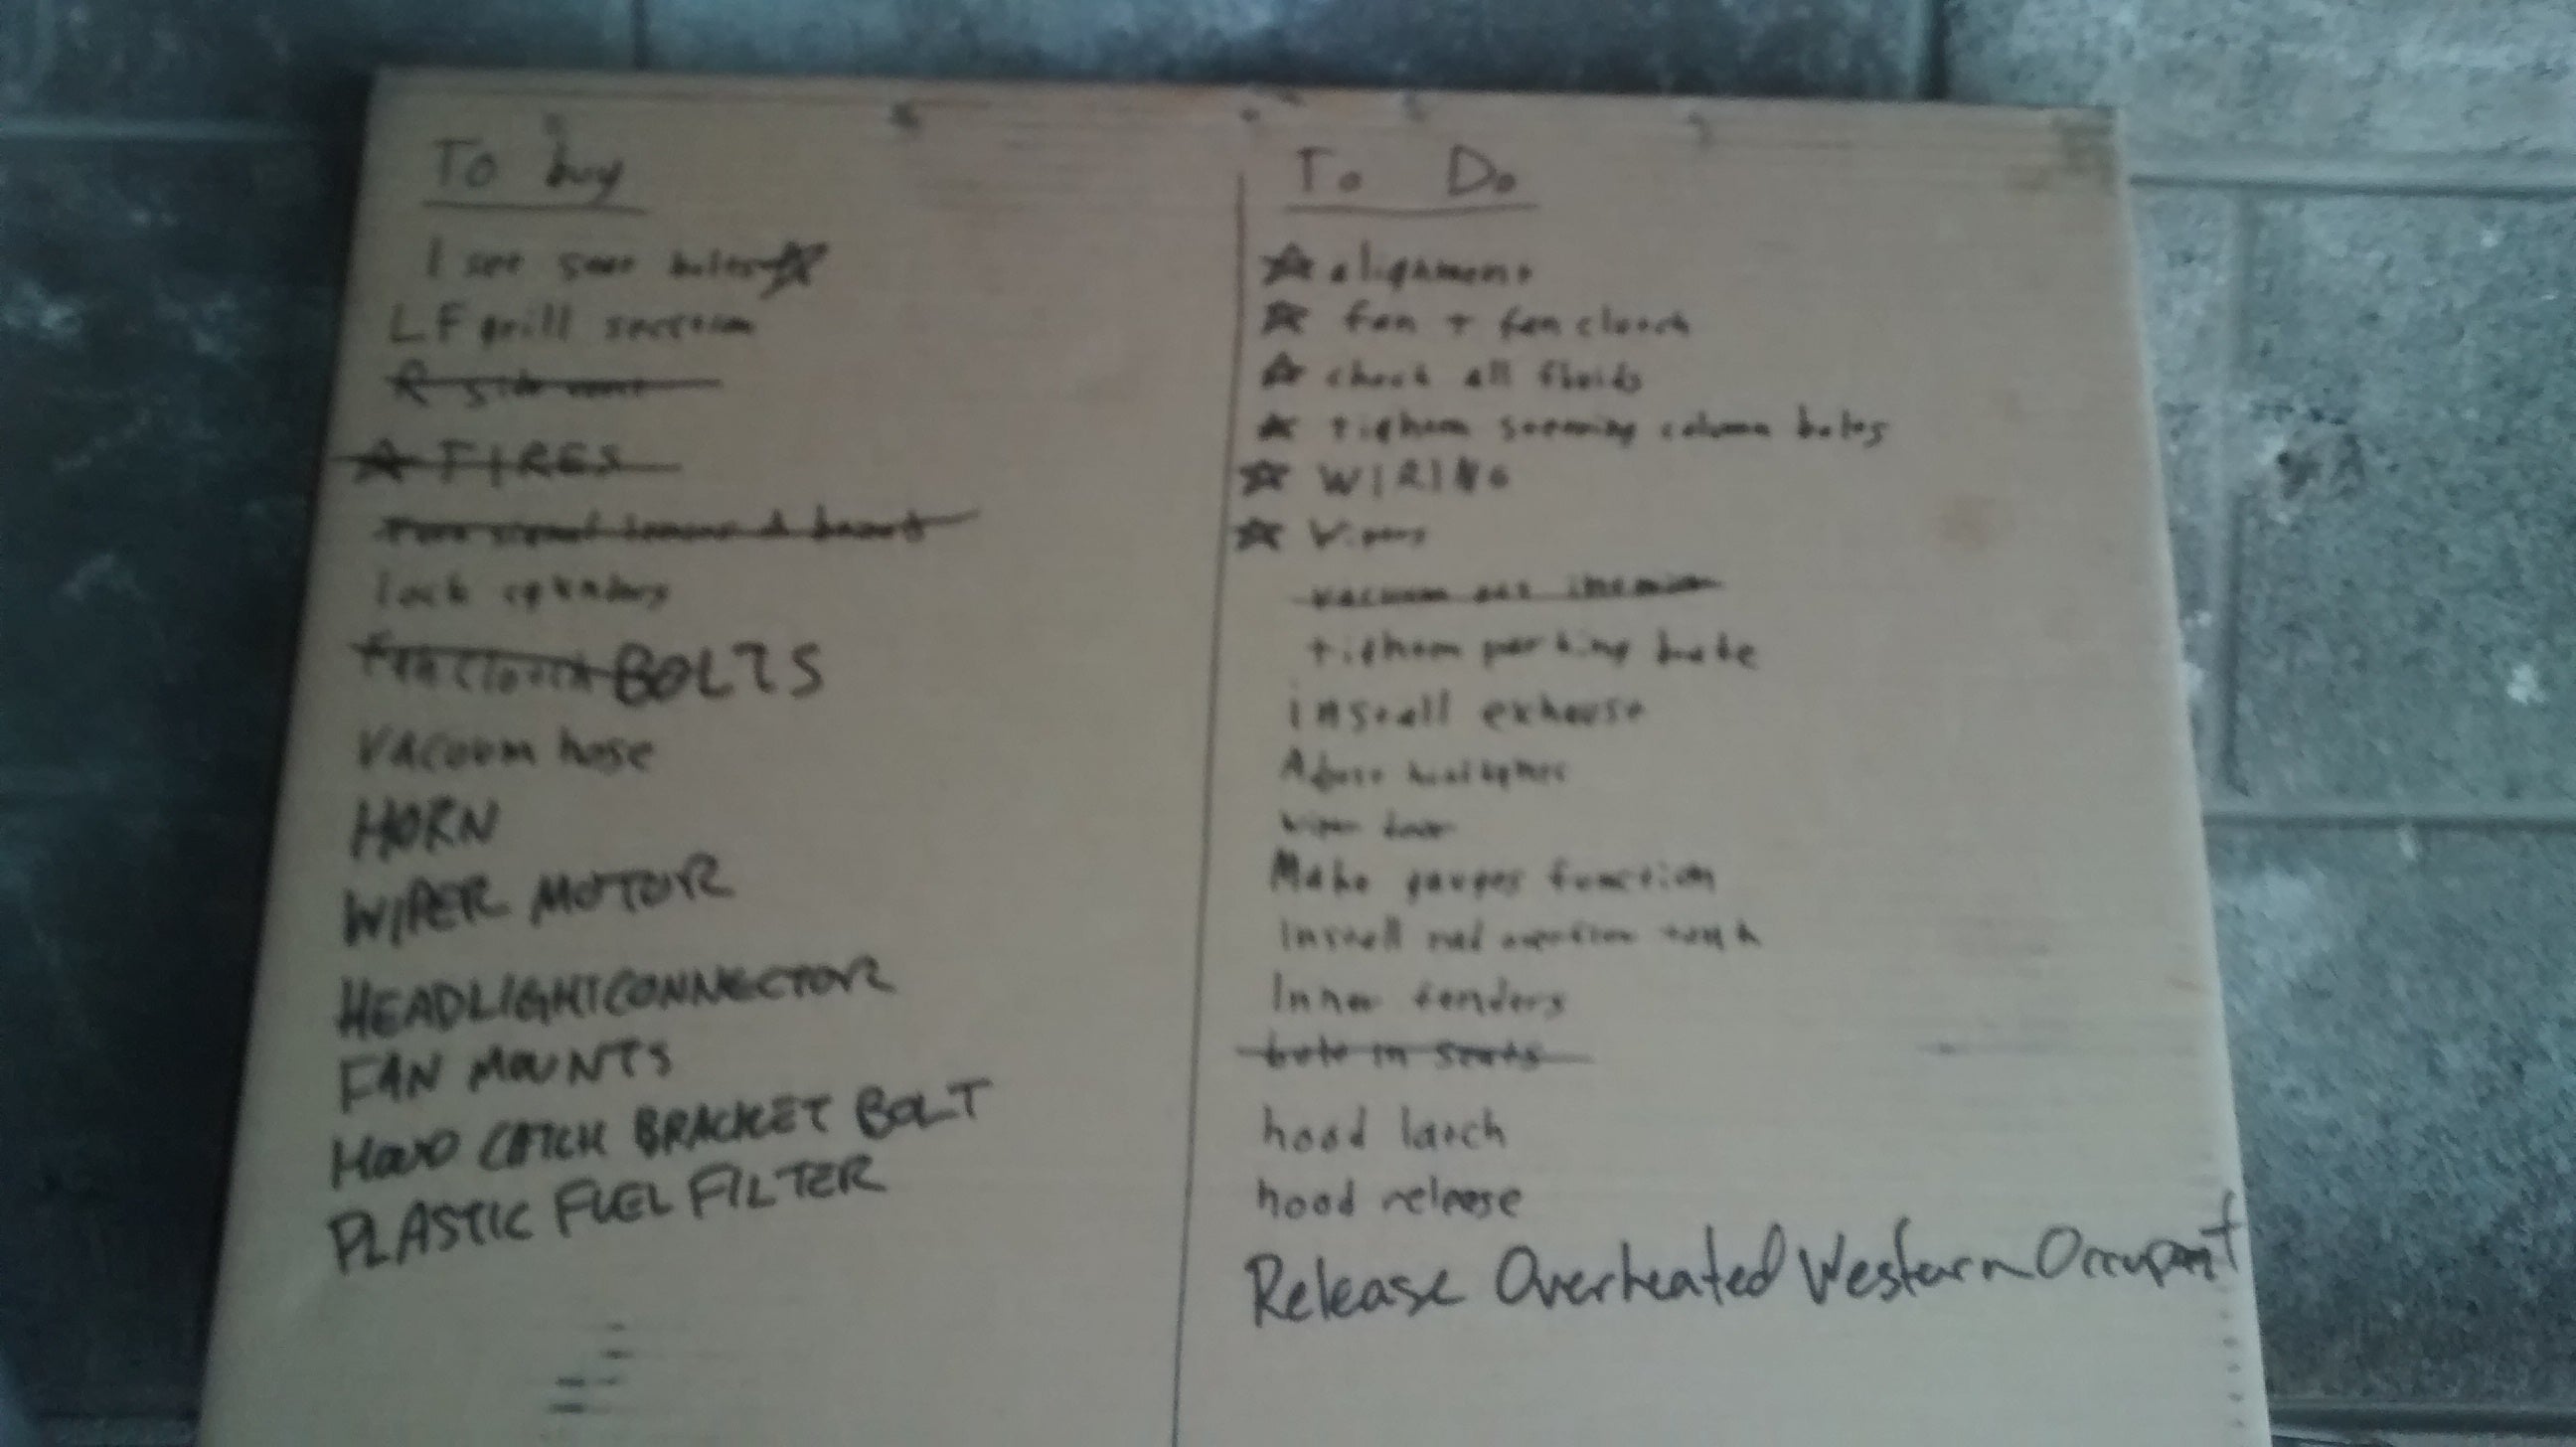 To buy
1 set seat bolts
LF grill section
R side vent
TIRES
lock cylinders
Fan clutch BOLTS
VACUUM hose
HORN
WIPER MOTOR
HEADLIGHT CONNECTOR
FAN MOUNTS
HOOD CATCH BRACKET BOLT
PLASTIC FUEL FILTER
To Do
alignment
fan + fan clutch
check all fluids
tighten steering column bolts
WIRING
Wipers
vacuum out interior
tighten parking brake
install exhaust
Adjust headlights
wiper door
Make gauges function
Install rad overflow tank
Inner fenders
bolt in seats
hood latch
hood release
Release Overheated Western Occupant